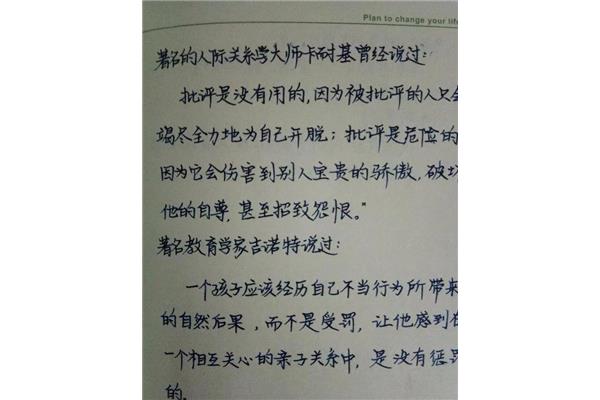 Plan to change your life
著名的人际关系学大师卡耐基曾经说过:
批评是没有用的,因为被批评的人只会
竭尽全力地为自己开脱;批评是危险的
因为它会伤害到别人宝贵的骄傲,破坏
他的自尊,甚至招致怨恨。"
著名教育学家吉诺特说过:
一个孩子应该经历自己不当行为所带来
的自然后果,而不是受罚,让他感到在
一个相互关心的亲子关系中,是没有惩罚
的.